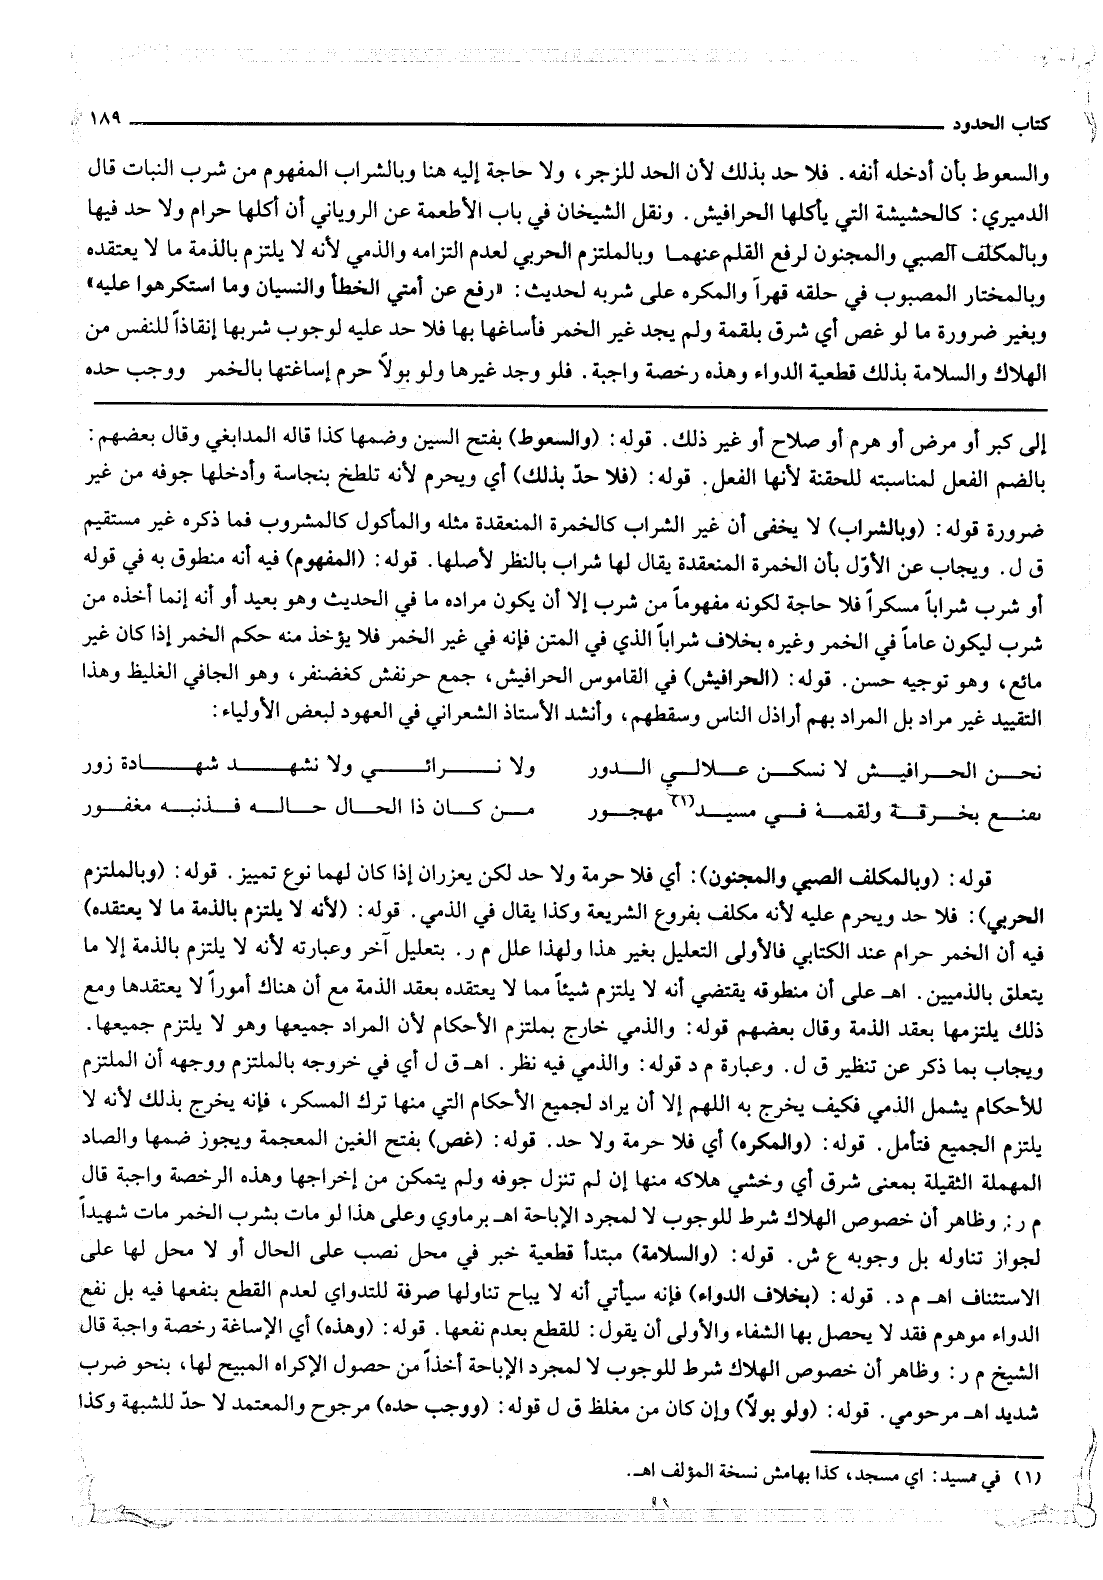 كتاب الحدود ١٨٩
والسعوط بأن أدخله أنفه. فلا حد بذلك لأن الحد للزجر، ولا حاجة إليه هنا وبالشراب المفهوم من شرب النبات قال
الدميري: كالحشيشة التي يأكلها الحرافيش. ونقل الشيخان في باب الأطعمة عن الروياني أن أكلها حرام ولا حد فيها
وبالمكلف الصبي والمجنون لرفع القلم عنهما وبالملتزم الحربي لعدم التزامه والذمي لأنه لا يلتزم بالذمة ما لا يعتقده
وبالمختار المصبوب في حلقه قهراً والمكره على شربه لحديث: «رفع عن أمتي الخطأ والنسيان وما استكرهوا عليه»
وبغير ضرورة ما لو غص أي شرق بلقمة ولم يجد غير الخمر فأساغها بها فلا حد عليه لوجوب شربها إنقاذاً للنفس من
الهلاك والسلامة بذلك قطعية الدواء وهذه رخصة واجبة. فلو وجد غيرها ولو بولاً حرم إساغتها بالخمر ووجب حده
إلى كبر أو مرض أو هرم أو صلاح أو غير ذلك. قوله: (والسعوط) بفتح السين وضمها كذا قاله المدابغي وقال بعضهم:
بالضم الفعل لمناسبته للحقنة لأنها الفعل. قوله: (فلا حدّ بذلك) أي ويحرم لأنه تلطخ بنجاسة وأدخلها جوفه من غير
ضرورة قوله: (وبالشراب) لا يخفى أن غير الشراب كالخمرة المنعقدة مثله والمأكول كالمشروب فما ذكره غير مستقيم
ق ل. ويجاب عن الأوّل بأن الخمرة المنعقدة يقال لها شراب بالنظر لأصلها. قوله: (المفهوم) فيه أنه منطوق به في قوله
أو شرب شراباً مسكراً فلا حاجة لكونه مفهوماً من شرب إلا أن يكون مراده ما في الحديث وهو بعيد أو أنه إنما أخذه من
شرب ليكون عاماً في الخمر وغيره بخلاف شراباً الذي في المتن فإنه في غير الخمر فلا يؤخذ منه حكم الخمر إذا كان غير
مائع، وهو توجيه حسن. قوله: (الحرافيش) في القاموس الحرافيش، جمع حرنفش كغضنفر، وهو الجافي الغليظ وهذا
التقييد غير مراد بل المراد بهم أراذل الناس وسقطهم، وأنشد الأستاذ الشعراني في العهود لبعض الأولياء:
نحن الحرافيش لا نسكن علالي الدور ولا نرائي ولا نشهد شهادة زور
نقنع بخرقة ولقمة في مسيد(١) مهجور من كان ذا الحال حاله فذنبه مغفور
قوله: (وبالمكلف الصبي والمجنون): أي فلا حرمة ولا حد لكن يعزران إذا كان لهما نوع تمييز. قوله: (وبالملتزم
الحربي): فلا حد ويحرم عليه لأنه مكلف بفروع الشريعة وكذا يقال في الذمي. قوله: (لأنه لا يلتزم بالذمة ما لا يعتقده)
فيه أن الخمر حرام عند الكتابي فالأولى التعليل بغير هذا ولهذا علل م ر. بتعليل آخر وعبارته لأنه لا يلتزم بالذمة إلا ما
يتعلق بالذميين. اهـ على أن منطوقه يقتضي أنه لا يلتزم شيئاً مما لا يعتقده بعقد الذمة مع أن هناك أموراً لا يعتقدها ومع
ذلك يلتزمها بعقد الذمة وقال بعضهم قوله: والذمي خارج بملتزم الأحكام لأن المراد جميعها وهو لا يلتزم جميعها.
ويجاب بما ذكر عن تنظير ق ل. وعبارة م د قوله: والذمي فيه نظر. اهـ ق ل أي في خروجه بالملتزم ووجهه أن الملتزم
للأحكام يشمل الذمي فكيف يخرج به اللهم إلا أن يراد لجميع الأحكام التي منها ترك المسكر، فإنه يخرج بذلك لأنه لا
يلتزم الجميع فتأمل. قوله: (والمكره) أي فلا حرمة ولا حد. قوله: (غص) بفتح الغين المعجمة ويجوز ضمها والصاد
المهملة الثقيلة بمعنى شرق أي وخشي هلاكه منها إن لم تنزل جوفه ولم يتمكن من إخراجها وهذه الرخصة واجبة قال
م ر: وظاهر أن خصوص الهلاك شرط للوجوب لا لمجرد الإباحة اهـ برماوي وعلى هذا لو مات بشرب الخمر مات شهيداً
لجواز تناوله بل وجوبه ع ش. قوله: (والسلامة) مبتدأ قطعية خبر في محل نصب على الحال أو لا محل لها على
الاستئناف اهـ م د. قوله: (بخلاف الدواء) فإنه سيأتي أنه لا يباح تناولها صرفة للتداوي لعدم القطع بنفعها فيه بل نفع
الدواء موهوم فقد لا يحصل بها الشفاء والأولى أن يقول: للقطع بعدم نفعها. قوله: (وهذه) أي الإساغة رخصة واجبة قال
الشيخ م ر: وظاهر أن خصوص الهلاك شرط للوجوب لا لمجرد الإباحة أخذاً من حصول الإكراه المبيح لها، بنحو ضرب
شديد اهـ مرحومي. قوله: (ولو بولاً) وإن كان من مغلظ ق ل قوله: (ووجب حده) مرجوح والمعتمد لا حدّ للشبهة وكذا
(١) في مسيد: اي مسجد، كذا بهامش نسخة المؤلف اهـ.